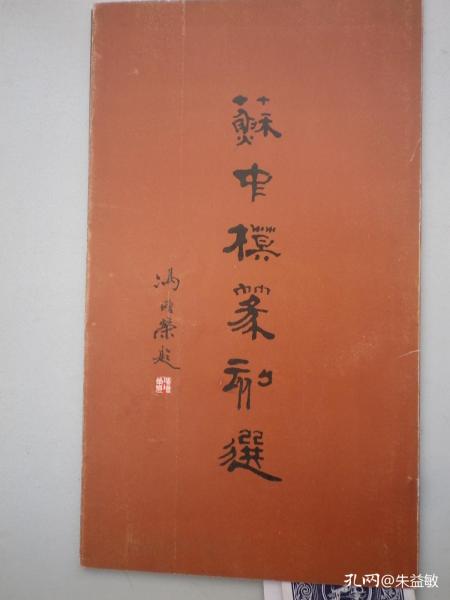 蘇中樸篆刻選
馮榮題
孔网@朱益敏